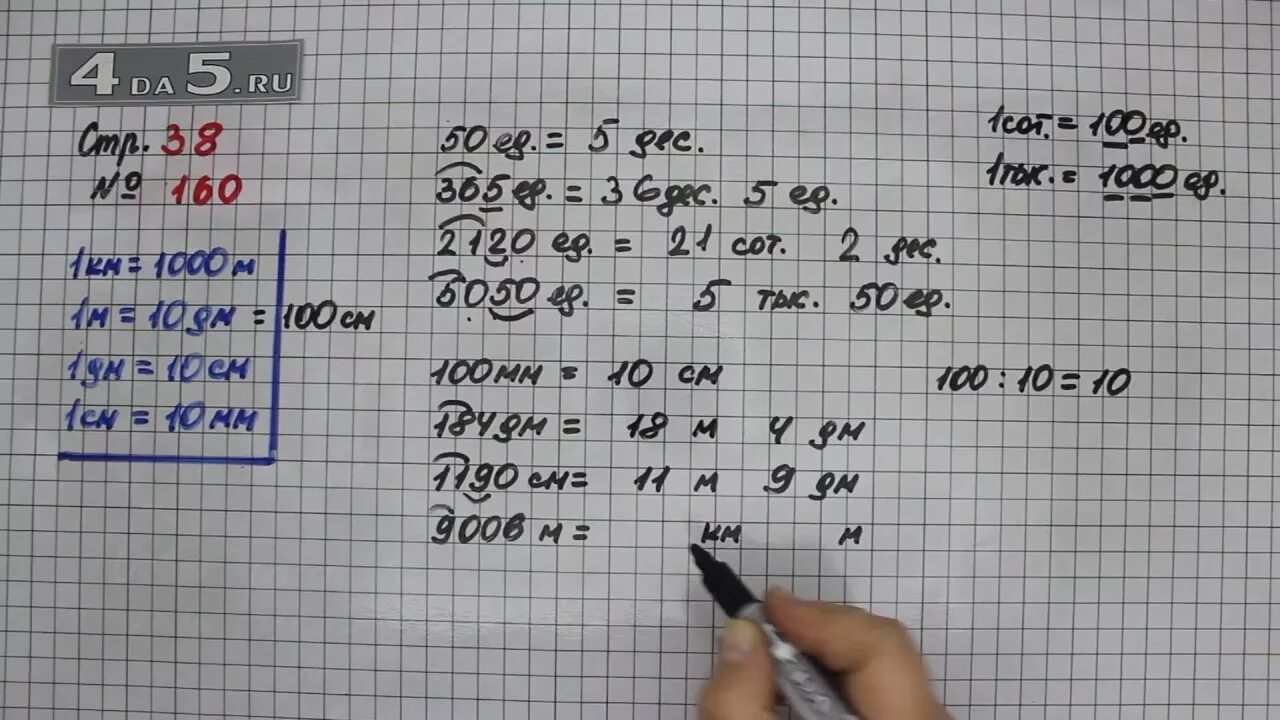 4 DA 5.RU
Стр. 38
№ 160
1км = 1000 м
1м = 10 дм = 100 см
1дм = 10 см
1см = 10 мм
50 ед. = 5 дес.
365 ед. = 36 дес. 5 ед.
2120 ед. = 21 сот. 2 дес.
5050 ед. = 5 тыс. 50 ед.
100 мм = 10 см
184 дм = 18 м 4 дм
1190 см = 11 м 9 дм
9006 м = км м
1 сот. = 100 ед.
1 тыс. = 1000 ед.
100 : 10 = 10